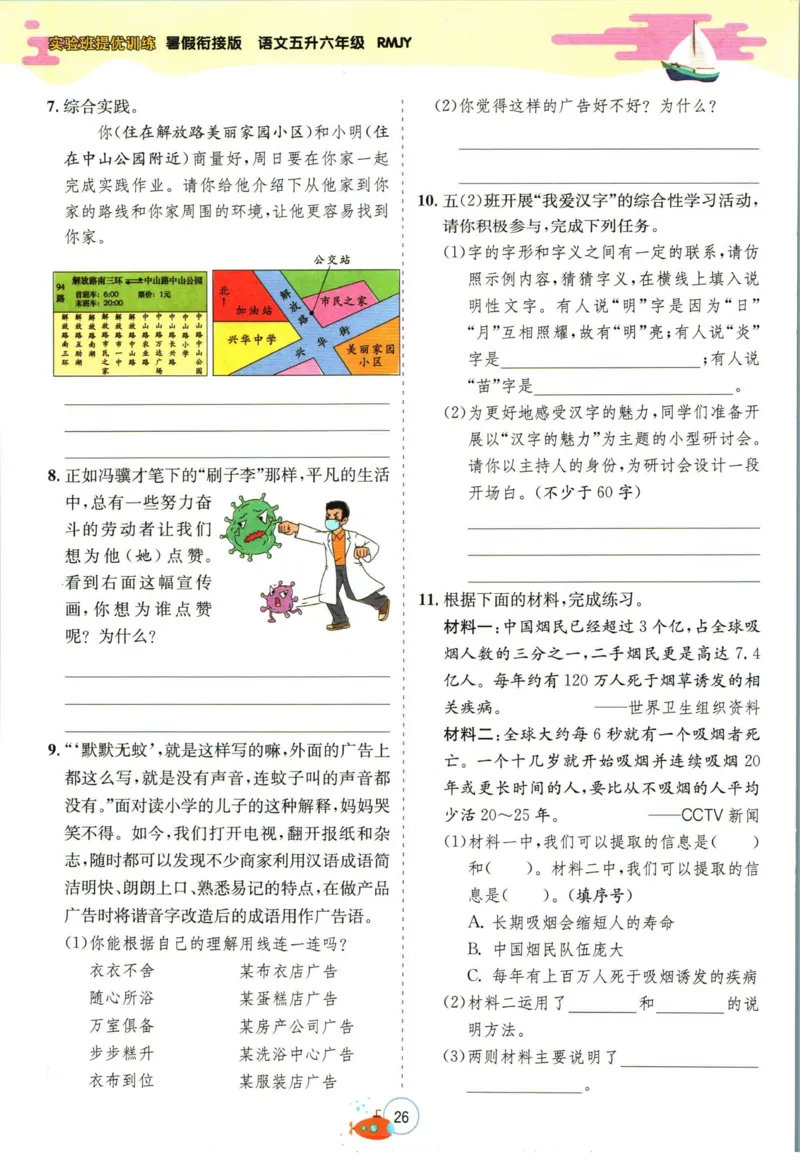 实验班提优训练 暑假衔接版 语文五升六年级 RMJY
7. 综合实践。
你(住在解放路美丽家园小区)和小明(住
在中山公园附近)商量好,周日要在你家一起
完成实践作业。请你给他介绍下从他家到你
家的路线和你家周围的环境,让他更容易找到
你家。
94路
解放路南三环⇌中山路中山公园
首班车: 6:00 票价: 1元
末班车: 20:00
解放路南三环
解放路助湖
解放路南湖
解放路市民之家
解放路市一中
解放路中山路
中山路农业路
中山路万达广场
中山路长兴路
中山路小学
中山路中山公园
公交站
北
加油站
解放路
市民之家
兴华中学
兴华街
美丽家园
小区
8. 正如冯骥才笔下的“刷子李”那样,平凡的生活
中,总有一些努力奋
斗的劳动者让我们
想为他(她)点赞。
看到右面这幅宣传
画,你想为谁点赞
呢? 为什么?
9. “‘默默无蚊’,就是这样写的嘛,外面的广告上
都这么写,就是没有声音,连蚊子叫的声音都
没有。”面对读小学的儿子的这种解释,妈妈哭
笑不得。如今,我们打开电视,翻开报纸和杂
志,随时都可以发现不少商家利用汉语成语简
洁明快、朗朗上口、熟悉易记的特点,在做产品
广告时将谐音字改造后的成语用作广告语。
(1)你能根据自己的理解用线连一连吗?
衣衣不舍 某布衣店广告
随心所浴 某蛋糕店广告
万室俱备 某房产公司广告
步步糕升 某洗浴中心广告
衣布到位 某服装店广告
(2)你觉得这样的广告好不好? 为什么?
10. 五(2)班开展“我爱汉字”的综合性学习活动,
请你积极参与,完成下列任务。
(1)字的字形和字义之间有一定的联系,请仿
照示例内容,猜猜字义,在横线上填入说
明性文字。有人说“明”字是因为“日”
“月”互相照耀,故有“明”亮;有人说“炎”
字是____________________;有人说
“苗”字是____________________。
(2)为更好地感受汉字的魅力,同学们准备开
展以“汉字的魅力”为主题的小型研讨会。
请你以主持人的身份,为研讨会设计一段
开场白。(不少于 60 字)
11. 根据下面的材料,完成练习。
材料一:中国烟民已经超过 3 个亿,占全球吸
烟人数的三分之一,二手烟民更是高达 7.4
亿人。每年约有 120 万人死于烟草诱发的相
关疾病。 ——世界卫生组织资料
材料二:全球大约每 6 秒就有一个吸烟者死
亡。一个十几岁就开始吸烟并连续吸烟 20
年或更长时间的人,要比从不吸烟的人平均
少活 20～25 年。 ——CCTV 新闻
(1)材料一中,我们可以提取的信息是( )
和( )。材料二中,我们可以提取的信
息是( )。(填序号)
A. 长期吸烟会缩短人的寿命
B. 中国烟民队伍庞大
C. 每年有上百万人死于吸烟诱发的疾病
(2)材料二运用了________和________的说
明方法。
(3)两则材料主要说明了________________
______________。
26